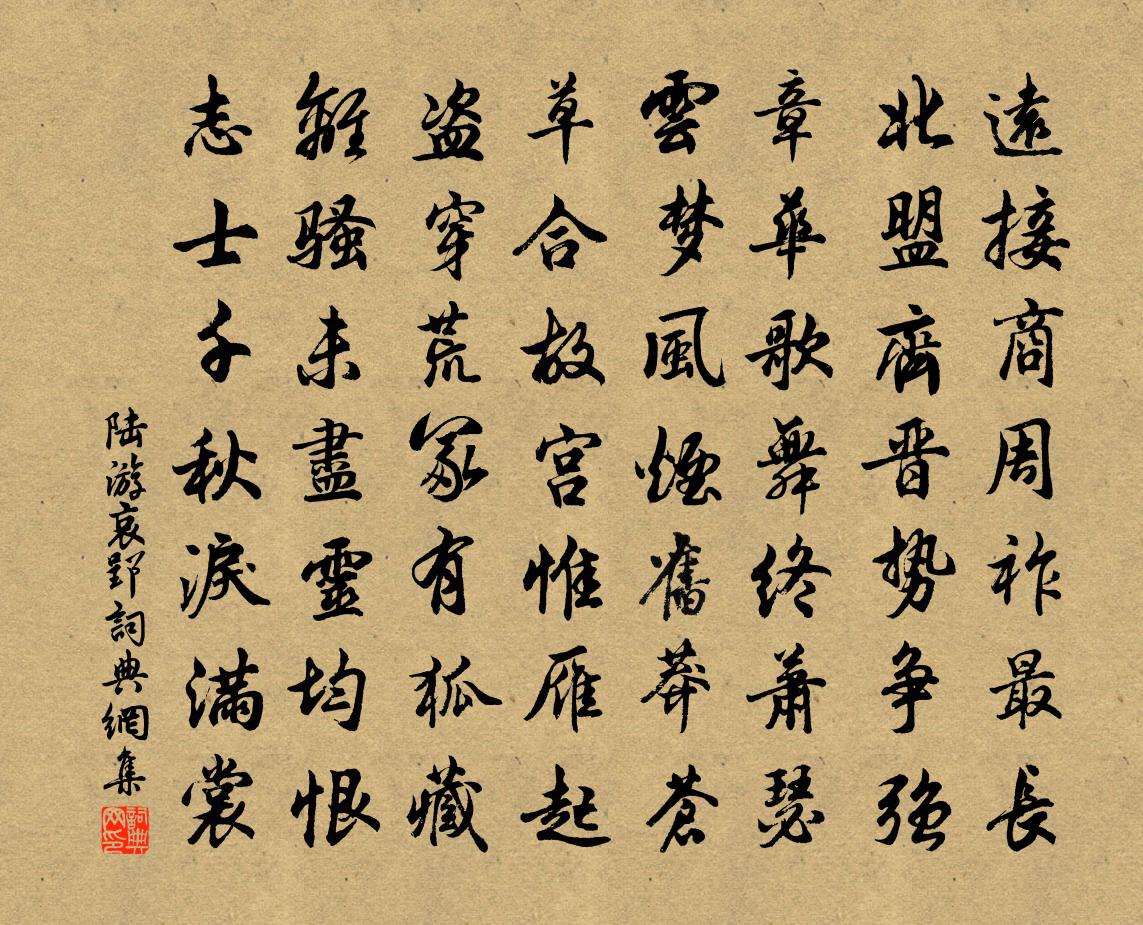 遠接商周祚最長
北盟齊晋势爭强
章華歌舞終蕭瑟
雲梦風煙舊莽蒼
草合故宫惟雁起
盗穿荒冢有狐藏
離騷未盡靈均恨
志士千秋淚满裳
陆游哀郢詞典網集
詞典网印